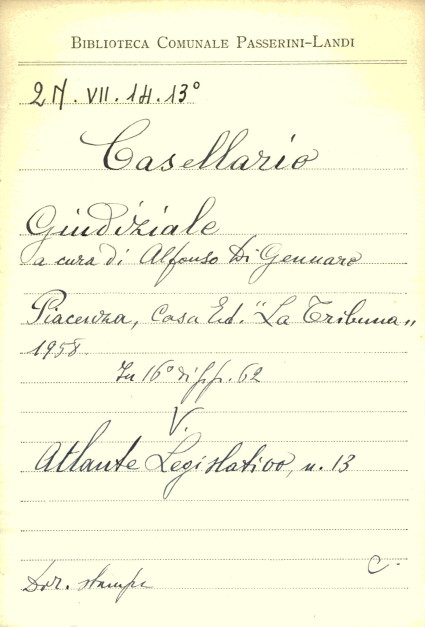 BIBLIOTECA COMUNALE PASSERINI-LANDI
2N. VII. 14. 13°
Casellario
Giudiziale
a cura di Alfonso Di Gennaro
Piacenza, Casa Ed. "La Tribuna"
1958.
In 16° di pp. 62
V.
Atlante Legislativo, n. 13
C.
Dir. stampe